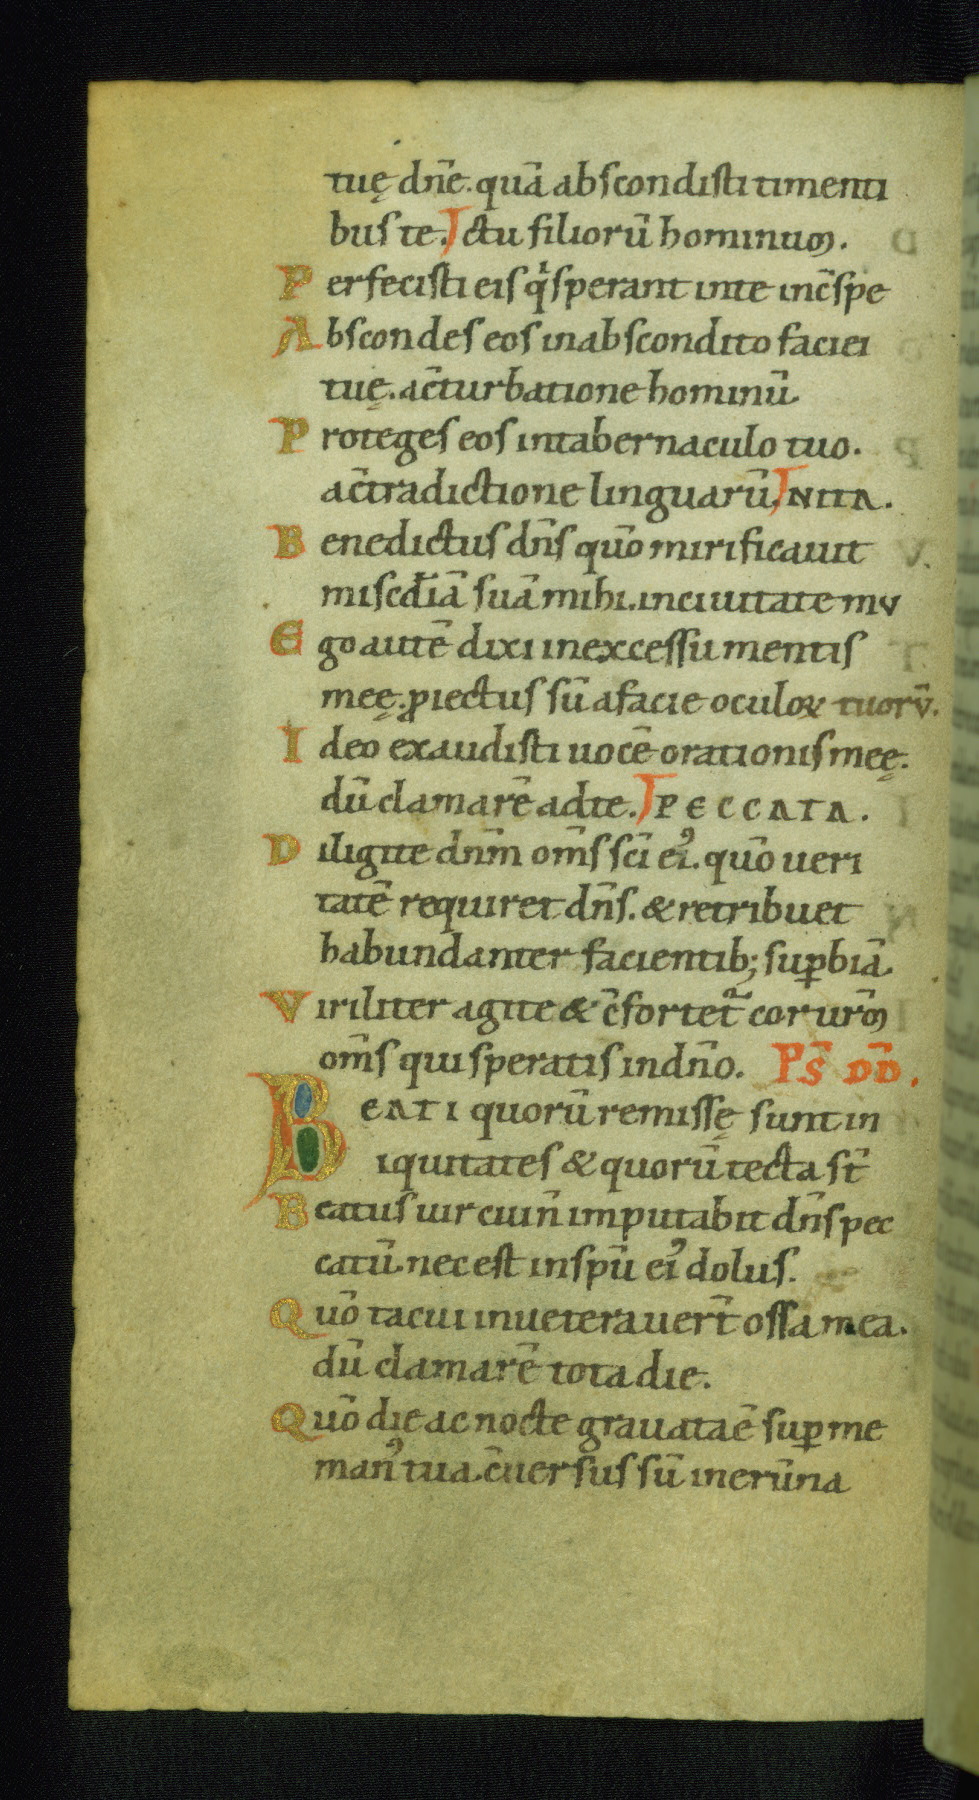 tuę dn̄e. quā abscondisti timenti
bus te. ctu filiorū hominum.
Perfecisti eis qͥ sperant inte inc̄spe
Abscondes eos inabscondito faciei
tuę. ac̄turbatione hominū.
Proteges eos intabernaculo tuo.
ac̄tradictione linguarū. NITA.
Benedictus dn̄s quō mirificauit
misc̄dīā suā mihi. inciuitate mv
Ego autē dixi inexcessu mentis
meę. ꝓiectus sū afacie oculoꝝ tuorv̄.
Ideo exaudisti uocē orationis meę.
dū clamarē adte. PECCATA.
Diligite dn̄m om̄s sc̄i ei᾽. quō ueri
tatē requiret dn̄s. & retribuet
habundanter facientib; suꝑbiā.
Viriliter agite & c̄fortet᷑ cor ur̄m
om̄s qui speratis indn̄o. Ps̄ DD̄.
BEATI quorū remissę sunt in
iquitates & quorū tecta st̄
Beatus uir cuin̄ imputabit dn̄s pec
catū. nec est inspū ei᾽ dolus.
Quō tacui inueterauer̄t ossa mea.
dū clamarē tota die.
Quō die ac nocte grauata ē suꝑ me
man᾽ tua. c̄uersus sū inerūna